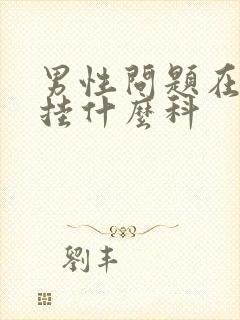 男性問題在
挂什麼科
劉丰